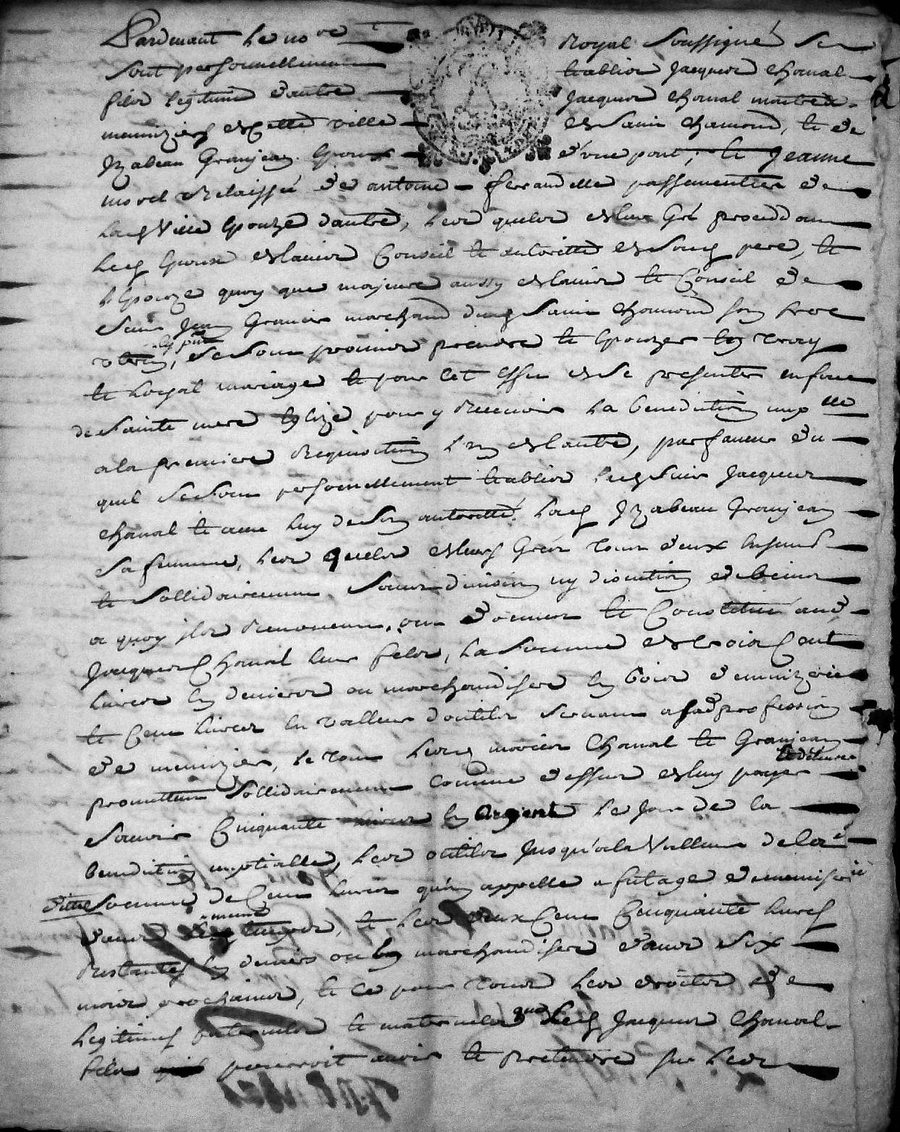 Pardevant le no.re Royal Soussigné se
sont personnellement Etablis Jacques Chanal
fils legitime d'autre Jacques Chanal maitre
menuizier de cette ville de Saint Chamond, et de
Izabeau Granjean Epoux d'une part, et Jeanne
morel Relaissée de antoine ferrandelle passementier de
lad. Ville Epouze d'autre, lesq quels de leur Gré procedant
led. Epoux de lavis Conseil et autoritté de son d. pere, et
l'Epouze quoy que majeure aussy de lavis et Conseil de
Sieur Jean Granier marchand dud. Saint Chamond son frere
se sont promis prendre et Epouzer en vray
et loyal mariage et pour cet effet de se presenter en face
de Sainte mere Eglize pour y Recevoir la benediction nup.lle
a la premiere Requisition l'un de lautre, par faveur du
quel se sont personnellement Etablis led. Sieur Jacques
Chanal et avec luy de son autoritté lad. Izabeau Granjean
sa femme, les quels de leurs Gréz tous deux ensemble
et Sollidairement, sans division ny discution de biens
a quoy ils Renoncent, ont donné et Constitué aud.
Jacques Chanal leur fils, la Somme de trois Cent
livres en deniers ou marchandises en bois de menuizerie
et Cent livres en valleur d'outils servant a sad. profession
de menuizier, le tout lesd. mariés Chanal et Granjean
promettent Sollidairement Comme dessus de luy payer et delivrer
Scavoir Cinquante livres en argent le jour de la
benediction nuptialle, les outils jusqu'a la Valleur de la
ditte somme de Cent livres qu'on appelle afutage de menuiserie
et les deux Cent Cinquante livres
Restantes en deniers ou en marchandises d'avis six
mois prochains, et ce pour tous les droits de
legitimes paternels et maternels que led. Jacques Chanal
fils pourroit avoir et pretendre sur les